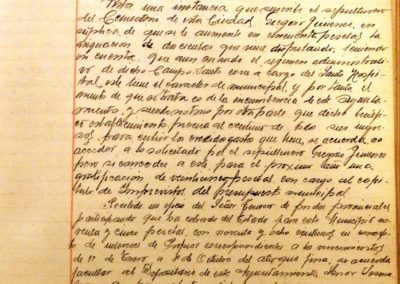 Vista una instancia que suscribe el sepulturero
del Cementerio de esta Ciudad Gregorio Jimenez, en
súplica de que se le aumente en cincuenta pesetas la
asignacion de doscientas que viene disfrutando, teniendo
en cuenta que aun cuando el regimen administrati-
vo de dicho Campo-Santo corra a cargo del Santo Hospi-
tal este tiene el caracter de municipal, y por tanto el
aumento de que se trata es de la incumbencia de este Ayunta-
miento, y por otra parte que dicho
establecimiento de todos sus ingre-
sos para cubrir las que tiene, se acuerda no
acceder a lo solicitado por el sepulturero Gregorio Jimenez
pero si conceder a este para el proximo año una
gratificacion de veinticinco pesetas, con cargo al capi-
tulo de Imprevistos del presupuesto municipal.
Recibido un oficio del Señor de fondos provinciales
participando que ha cobrado del Estado para este Municipio
y cinco pesetas, con noventa y ocho centimos en concep-
to de intereses de Propios correspondientes a los vencimientos
de 1º de Enero a de Octubre del año que fina, se acuerda
facultar al Depositario de este Ayuntamiento Señor